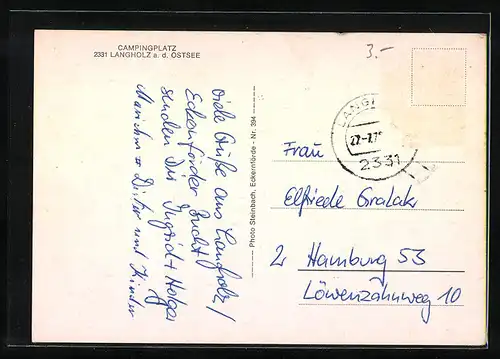 CAMPINGPLATZ
2331 LANGHOLZ a. d. OSTSEE
Viele Grüße aus Langholz/
Eckernförder Bucht
senden Dir Ingrid + Holger
Dieter und Kinder
Photo Steinbach, Eckernförde - Nr. 394
3.-
LANG
27.-7.7
2331
Frau
Elfriede Gralak
2 Hamburg 53
Löwenzahnweg 10